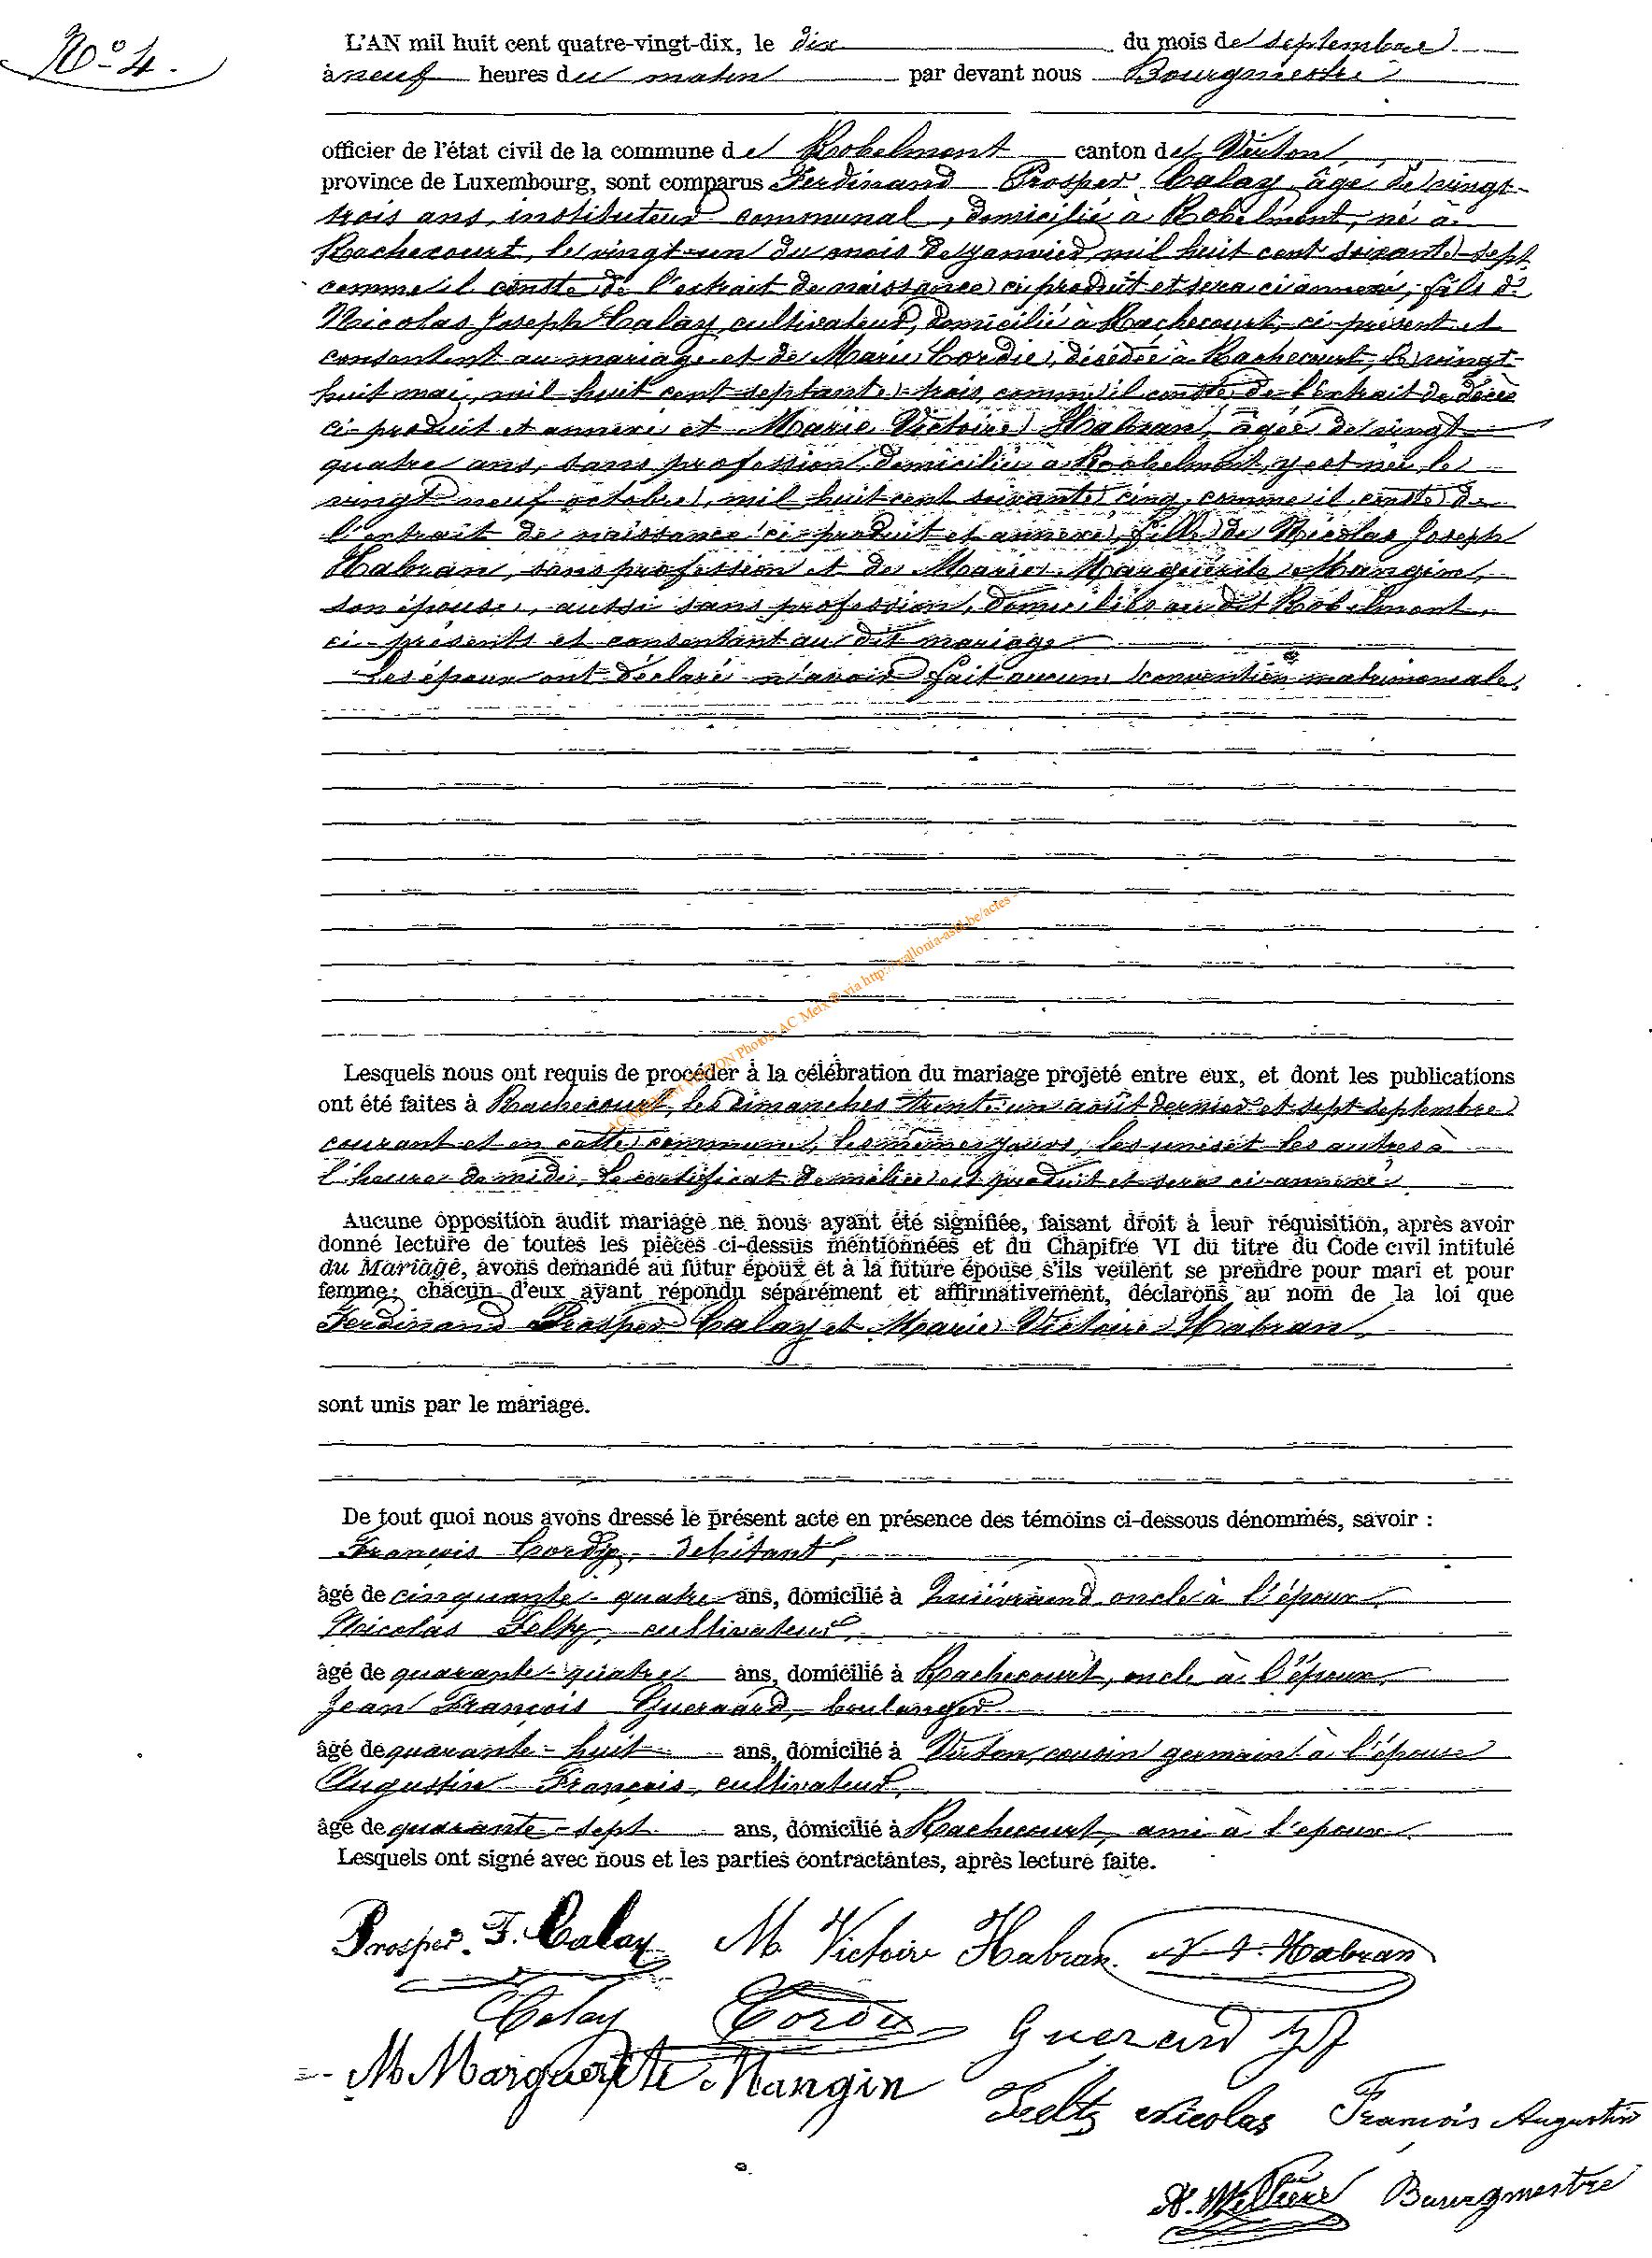 N° 4.
L'AN mil huit cent quatre-vingt-dix, le dix du mois de septembre
à neuf heures du matin par devant nous Bourgmestre
officier de l'état civil de la commune de Robelmont canton de Virton
province de Luxembourg, sont comparus Ferdinand Prosper Calay, âgé de vingt-
trois ans, instituteur communal, domicilié à Robelmont, né à
Rachecourt, le vingt-un du mois de janvier mil huit cent soixante-sept
comme il conste de l'extrait de naissance ci produit et sera ci annexé, fils de
Nicolas Joseph Calay, cultivateur, domicilié à Rachecourt, ci-présent et
consentent au mariage et de Marie Cordie, décédée à Rachecourt, le vingt-
huit mai, mil huit cent septante-trois, comme il conste de l'extrait de décès
ci-produit et annexé et Marie Victoire Habran, âgée de vingt
quatre ans, sans profession, domiciliée à Robelmont, y est née, le
vingt neuf octobre, mil huit cent soixante cinq, comme il conste de
l'extrait de naissance ci-produit et annexé, fille de Nicolas Joseph
Habran, sans profession et de Marie Marguerite Mangin,
son épouse, aussi sans profession, domiciliés au dit Robelmont,
ci-présents et consentant au dit mariage
Les époux ont déclaré n'avoir fait aucune convention matrimoniale.
Lesquels nous ont requis de procéder à la célébration du mariage projeté entre eux, et dont les publications
ont été faites à Rachecourt, les dimanches trente-un août dernier et sept septembre
courant et en cette commune, les mêmes jours, les unes et les autres à
l'heure de midi. Le certificat de milice est produit et sera ci-annexé.
Aucune opposition audit mariage ne nous ayant été signifiée, faisant droit à leur réquisition, après avoir
donné lecture de toutes les pièces ci-dessus mentionnées et du Chapitre VI du titre du Code civil intitulé
du Mariage, avons demandé au futur époux et à la future épouse s'ils veulent se prendre pour mari et pour
femme; chacun d'eux ayant répondu séparément et affirmativement, déclarons au nom de la loi que
Ferdinand Prosper Calay et Marie Victoire Habran,
sont unis par le mariage.
De tout quoi nous avons dressé le présent acte en présence des témoins ci-dessous dénommés, savoir :
François Cordie, débitant,
âgé de cinquante-quatre ans, domicilié à oncle à l'époux.
Nicolas Feltz, cultivateur,
âgé de quarante-quatre ans, domicilié à Rachecourt, oncle à l'époux.
Jean François Guerard, boulanger
âgé de quarante-huit ans, domicilié à Virton, cousin germain à l'épouse
Augustin François, cultivateur,
âgé de quarante-sept ans, domicilié à Rachecourt, ami à l'époux.
Lesquels ont signé avec nous et les parties contractantes, après lecture faite.
Prosper F. Calay M. Victoire Habran. N J. Habran
Calay Cordie Guerard J f
M Marguerite Mangin Feltz Nicolas François Augustin
Bourgmestre